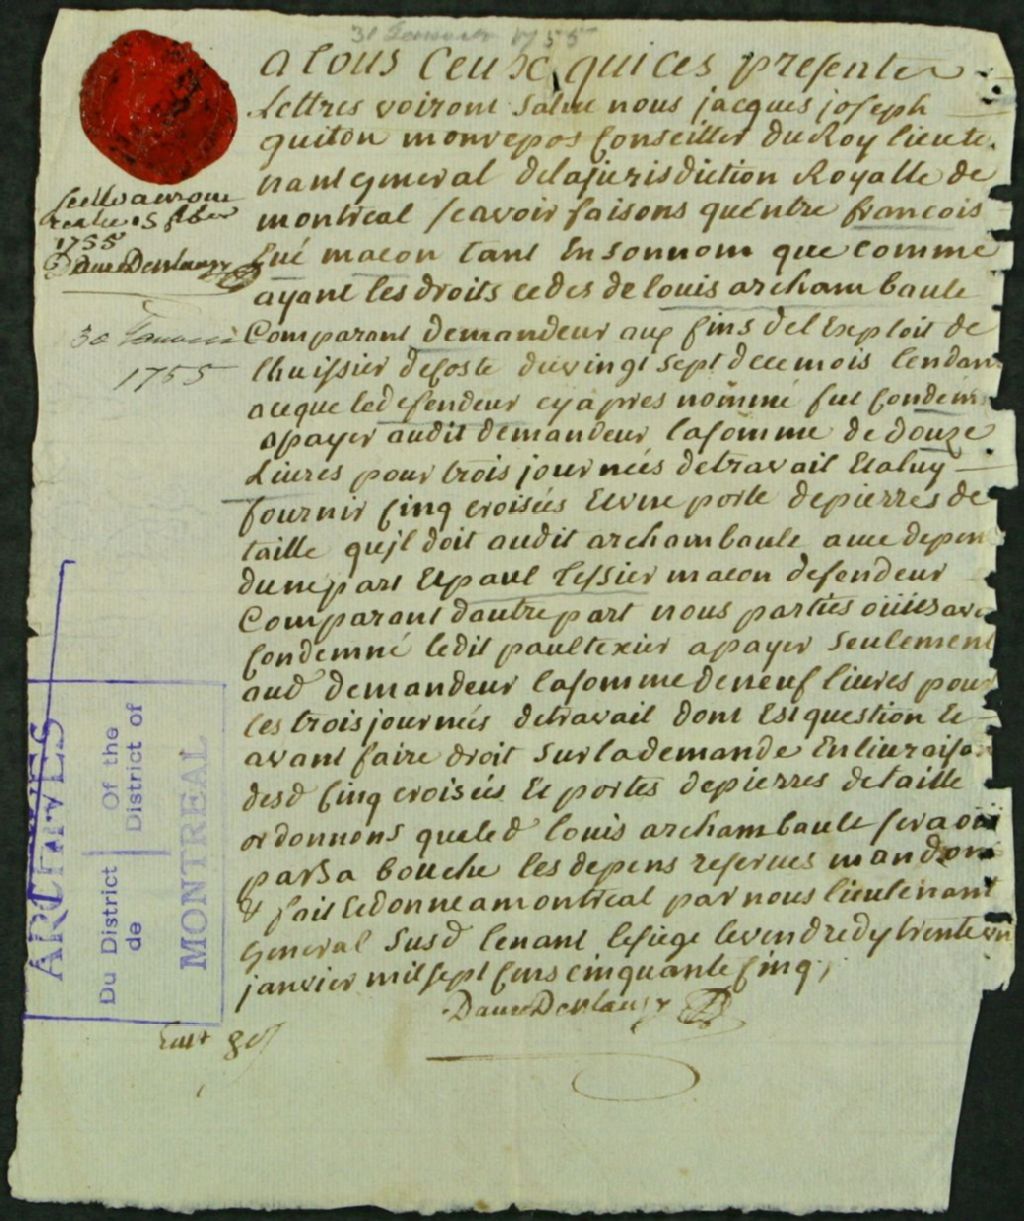 31 Janvier 1755
a tous Ceux qui ces presentes
Lettres voiront Salut nous jacques joseph
guiton monrepos Conseiller du Roy lieute
nant general delajurisdiction Royalle de
montreal scavoir faisons quéntre francois
macon tant Ensonnom que comme
ayant les droits cedés de louis archambault
Comparant demandeur aux fins del Exploit de
lhuissier decoste duvingt sept de ce mois tendant
aceque le defendeur cy apres nommé fut Condem
apayer audit demandeur lasomme de douze
Livres pour trois journées detravail Et aluy
fournir Cinq croisées Et une porte depierres de
taille qu'jl doit audit archambault avec depen
dune part Et paul Tessier macon defendeur
Comparant dautre part nous parties oüies avo
Condemné ledit paul texier apayer Seulement
aud demandeur lasomme deneuf livres pour
les trois journées detravail dont Est question Et
avant faire droit Sur la demande En livraison
desd Cinq croisées Et portes depierres detaille
ordonnons queled louis archambault sera oüi
par Sa bouche les depens reservés mandons
& fait Et donne a montreal par nous lieutenant
general Susd tenant lesiege levendredy trente un
janvier mil sept Cens cinquante Cinq,
Danré De Blanzy
Scellé a
15
1755
Danré De Blanzy
30 Janvier
1755
ARCHIVES
Du District | Of the
de | District of
MONTREAL